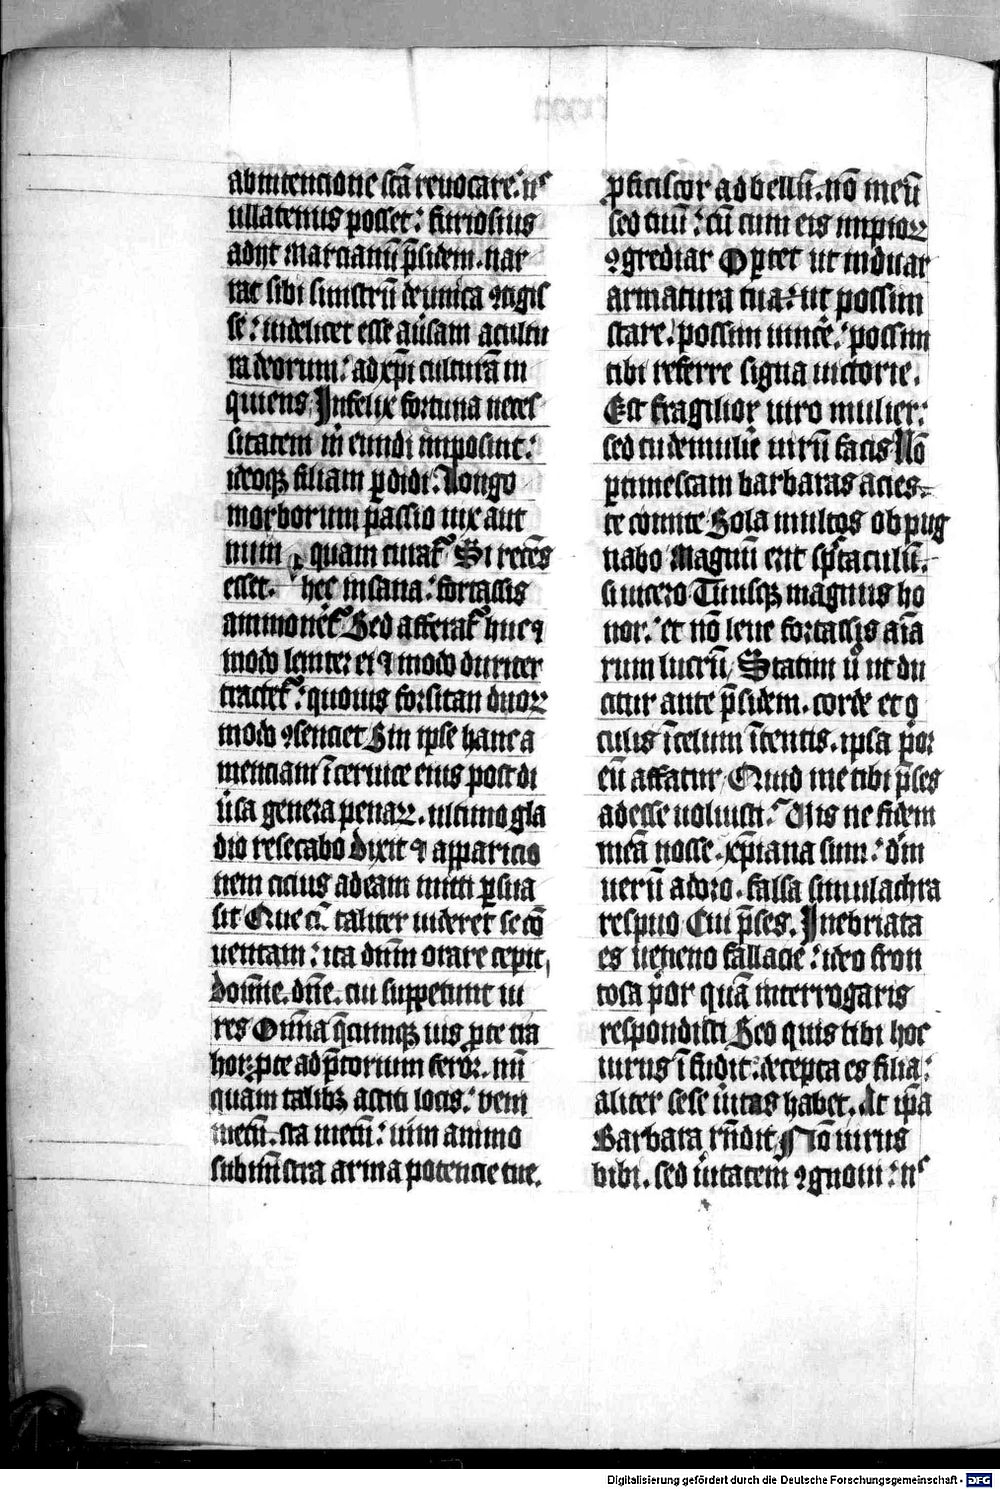 ab intencione sc̄a reuocare: nͨ
ullatenus posset: furiosius
adijt marcianū p̄sidem. nar
rat sibi sinistrū de unica ꝯtigis
se: uidelicet esse aūsam a cultu
ra deorum: ad xp̄i culturā in
quiens. Infelix fortuna neces
sitatem m̄ eundi imposuit:
ideoqꝫ filiam ꝑdidi. Longo
morborum passio uix aut
num quam curat᷑ Si recēs
esset. hec insana: fortassis
ammonet᷑ Sed afferat᷑ huc ⁊
modo leniter ei ⁊ modo duriter
tractet᷑: quouis forsitan duoꝝ
modo ꝯsenciet Sin ipse hanc a
menciam ī ceruice eius post di
ūsa genera penaꝝ. ultimo gla
dio resecabo dixit ⁊ apparicio
nem cicius ad eam mitti ꝑsua
sit Que cū taliter uideret se cō
uentam: ita dn̄m orare cepit,
dom̄e. dn̄e. cui suppetunt ui
res Om̄ia q̄cumqꝫ uis ꝑ te tia
hor. ꝑ te ad p̄torium feror. nū
quam talibꝫ astiti locis: dem
metū. sta mecū: uim animo
subm̄istra arma potencie tue.
ꝓficiscor ad bellū. nō meū
sed tuū: cū cum eis impioꝝ
ꝯgrediar Oportet ut induar
armatura tua: ut possim
stare: possim uincē: possim
tibi referre signa uictorie.
Est fragilior uiro mulier:
sed tu de muliē uirū facis Nō
ꝑtimescam barbaras acies
te comite Sola multos obpug
nabo Magnū erit spectaculū.
si uicero Tuusqꝫ magnus ho
nor: et nō leue fortassis aīa
rum lucrū, Statim ū ut du
citur ante p̄sidem. corde et o
culis ī celum ītentis. ipsa p̄or
eū affatur, Quid me tibi p̄ses
adesse uoluisti: Uis ne fidem
meā nosse. xp̄iana sum: dn̄m
uerū adoro. falsa simulachra
respuo Cui p̄ses. Inebriata
es ueneno fallacie: ideo fron
tosa p̄or quā interrogaris
respondisti Sed quis tibi hoc
uirus ī fudit: decepta es filia:
aliter sese ūitas habet. At ip̄a
Barbara rn̄dit Nō uirus
bibi. sed ūitatem ꝯgnoui: nͨ